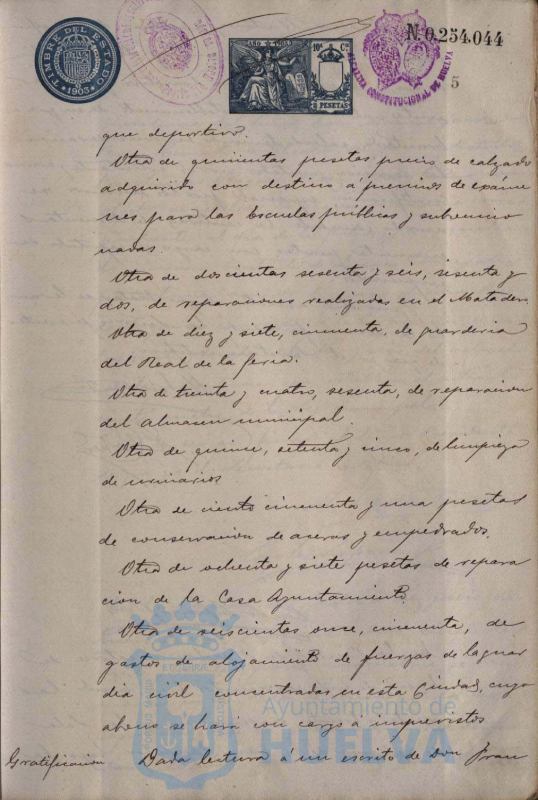 TIMBRE DEL ESTADO
1903
AÑO 1903
10ª Cª
2 PESETAS
ALCALDIA CONSTITUCIONAL DE HUELVA
N. 0.254.044
5
que deportivo.
Otra de quinientas pesetas precio de calzado
adquirido con destino á premios de exáme
nes para las Escuelas públicas y subvencio
nadas.
Otra de doscientas sesenta y seis, sesenta y
dos, de reparaciones realizadas en el Matadero
Otra de diez y siete, cincuenta, de guarderia
del Real de la feria.
Otra de treinta y cuatro, sesenta, de reparacion
del almacen municipal.
Otra de quince, setenta y cinco, de limpieza
de urinarios
Otra de ciento cincuenta y una pesetas
de conservacion de aceras y empedrados.
Otra de ochenta y siete pesetas de repara
cion de la Casa Ayuntamiento.
Otra de seiscientas once, cincuenta, de
gastos de alojamiento de fuerzas de la guar
dia civil concentradas en esta Ciudad, cuyo
abono se hará con cargo á imprevistos
Ayuntamiento de
HUELVA
Gratificacion Dada lectura á un escrito de Don Fran